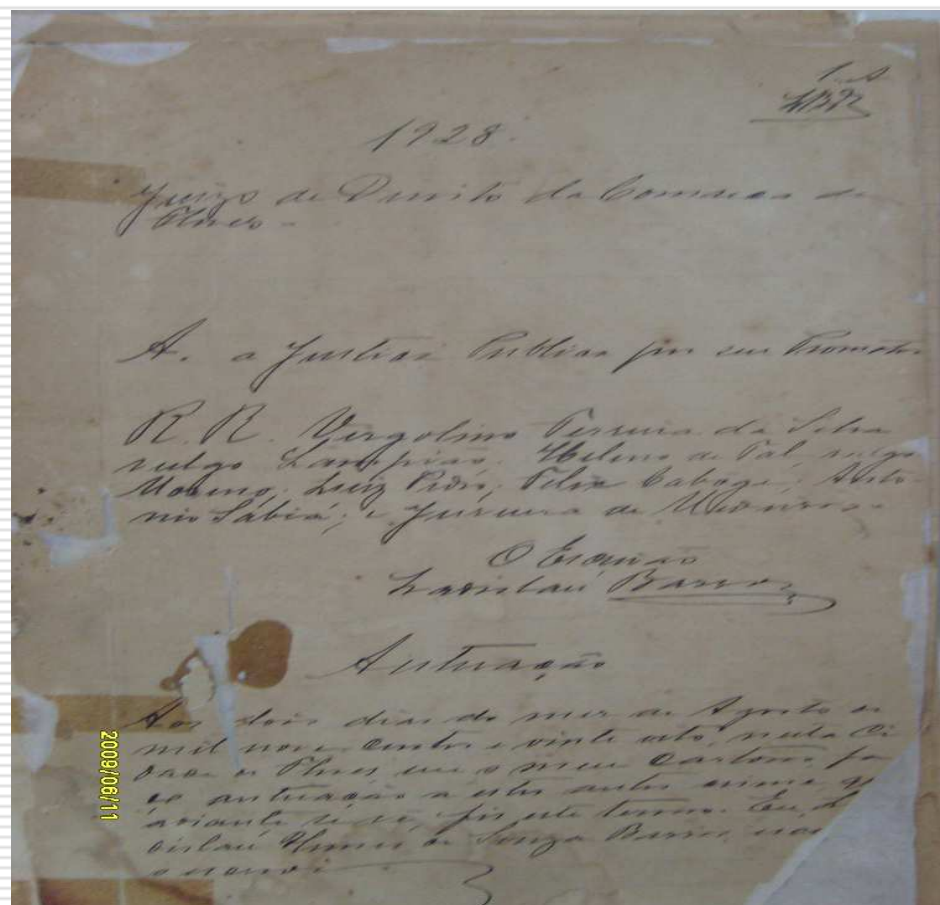 1928.
Juizo de Direito da Comarca de
Flores -
A. a Justiça Publica por seu Promotor
R. R. Vergolino Ferreira da Silva
vulgo Lampião, Heleno de Tal, vulgo
Moreno; Luiz Pedro; Felix Caboge; Anto-
nio Sabiá; e Jurema de Medeiros.
O Escrivão
Ladislau Barros
Autuação
Aos dois dias do mez de Agosto de
mil nove centos e vinte oito, nesta Ci
dade de Flores em o meu Cartorio, fa
ço autuação a estes autos crime q
adiante se vê, fiz este termo. Eu, La
dislau de Souza Barros,
o escrevi
2009/06/11